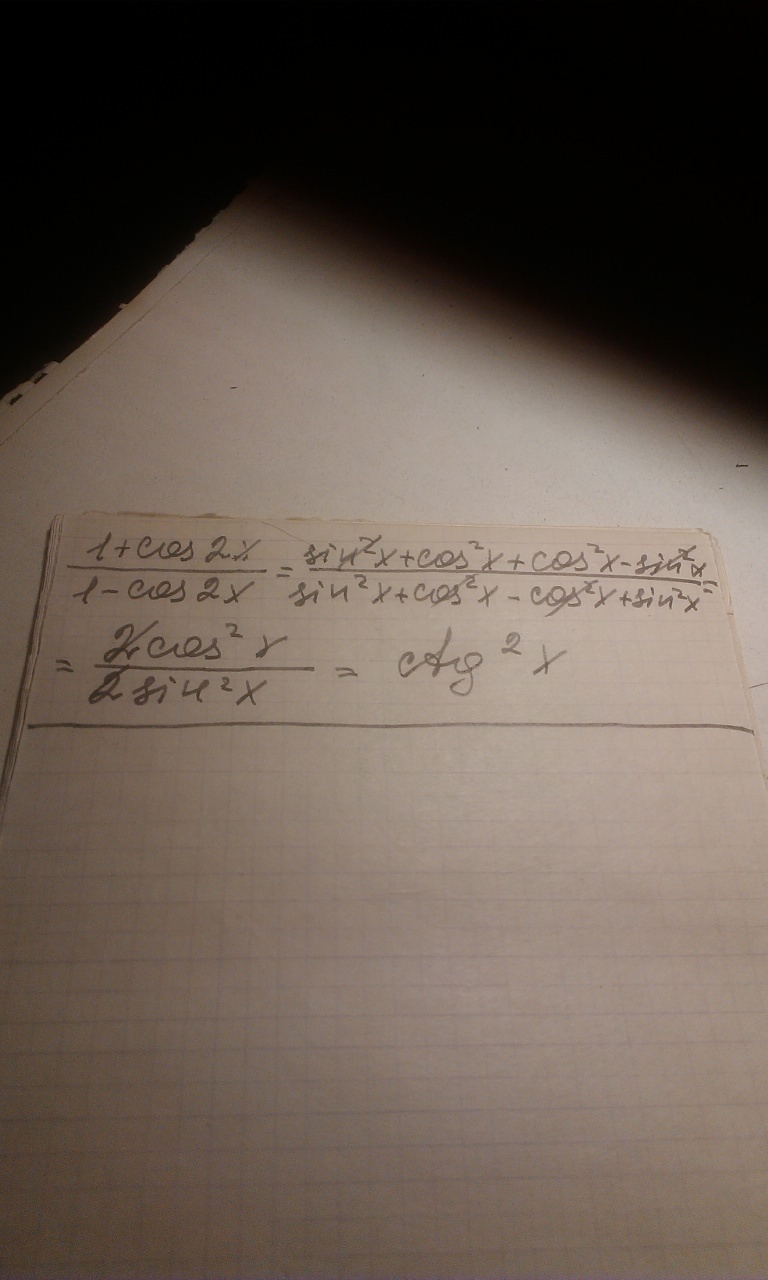 (1+cos 2x)/(1-cos 2x) = (sin²x+cos²x+cos²x-sin²x)/(sin²x+cos²x-cos²x+sin²x) =
= (2cos²x)/(2sin²x) = ctg²x